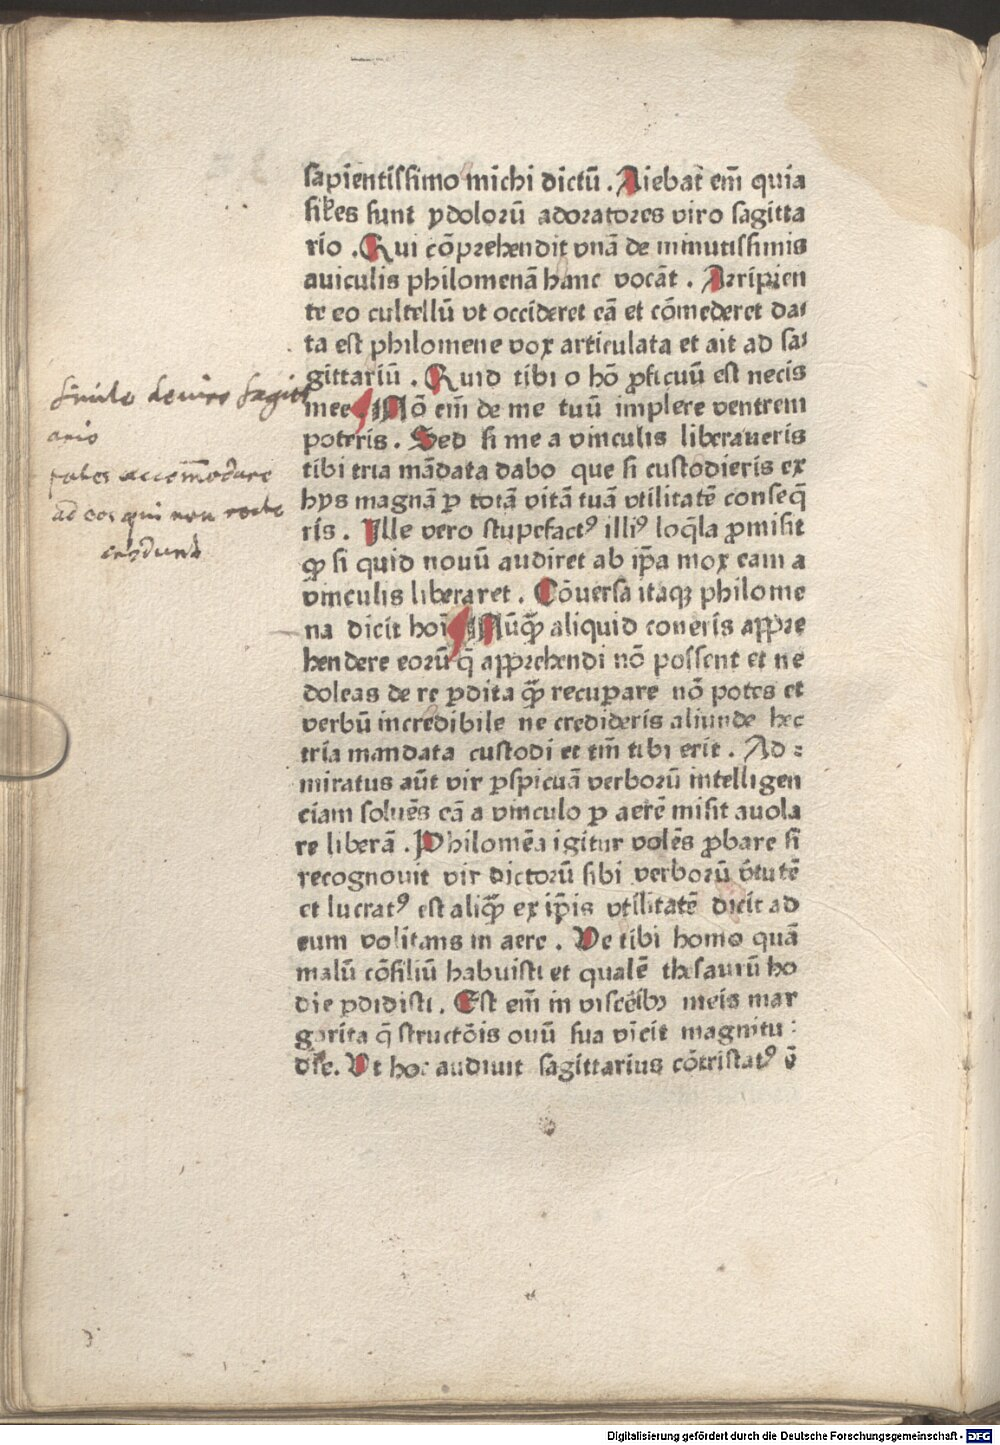 sapīentissimo michi dictū . Aiebat em̄ quia
siłes sunt ydolorū adoratores viro sagitta
rio . Qui cōprehendit vnā de minutissimis
auiculis philomenā hanc vocāt . Arripien
te eo cultellū vt occideret eā et cōmederet da⸗
ta est philomene vox articulata et ait ad sa⸗
gittariū . Quid tibi o hō ꝓficuū est necis
mee Nō em̄ de me tuū implere ventrem
poteris . Sed si me a vinculis liberaueris
tibi tria mādata dabo que si custodieris ex
hys magnā ꝑ totā vitā tuā vtilitatē conseq̄
ris . Ille vero stupefactꝰ illiꝰ loq̄la ꝓmisit
ꝙ si quid nouū audiret ab ip̄a mox eam a
vinculis liberaret . Cōuersa itaqꝫ philome
na dicit hoī Nūꝙ̄ aliquid coneris appre
hendere eorū q̄ apprehendi nō possent et ne
doleas de re ꝑdita ꝙ̄ recuꝑare nō potes et
verbū incredibile ne credideris aliunde hec
tria mandata custodi et tm̄ tibi erit . Ad⸗
miratus aūt vir ꝑspicuā verborū intelligen
ciam soluēs eā a vinculo ꝑ aerē misit auola
re liberā . Philomēa igitur volēs ꝓbare si
recognouit vir dictorū sibi verborū v̄tutē
et lucratꝰ est aliꝙ̄ ex ip̄is vtilitatē dicit ad
eum volitans in aere . Ve tibi homo quā
malū cōsiliū habuisti et qualē thesaurū ho
die ꝑdidisti . Est em̄ in viscēibꝫ meis mar
garita q̄ structōis ouū sua vīcit magnitu⸗
dīe. Vt hoc audiuit sagittarius cōtristatꝰ ē
Simile de viro sagitt
ario
potes accom̄odare
ad eos qui non recte
credunt
Digitalisierung gefördert durch die Deutsche Forschungsgemeinschaft - DFG